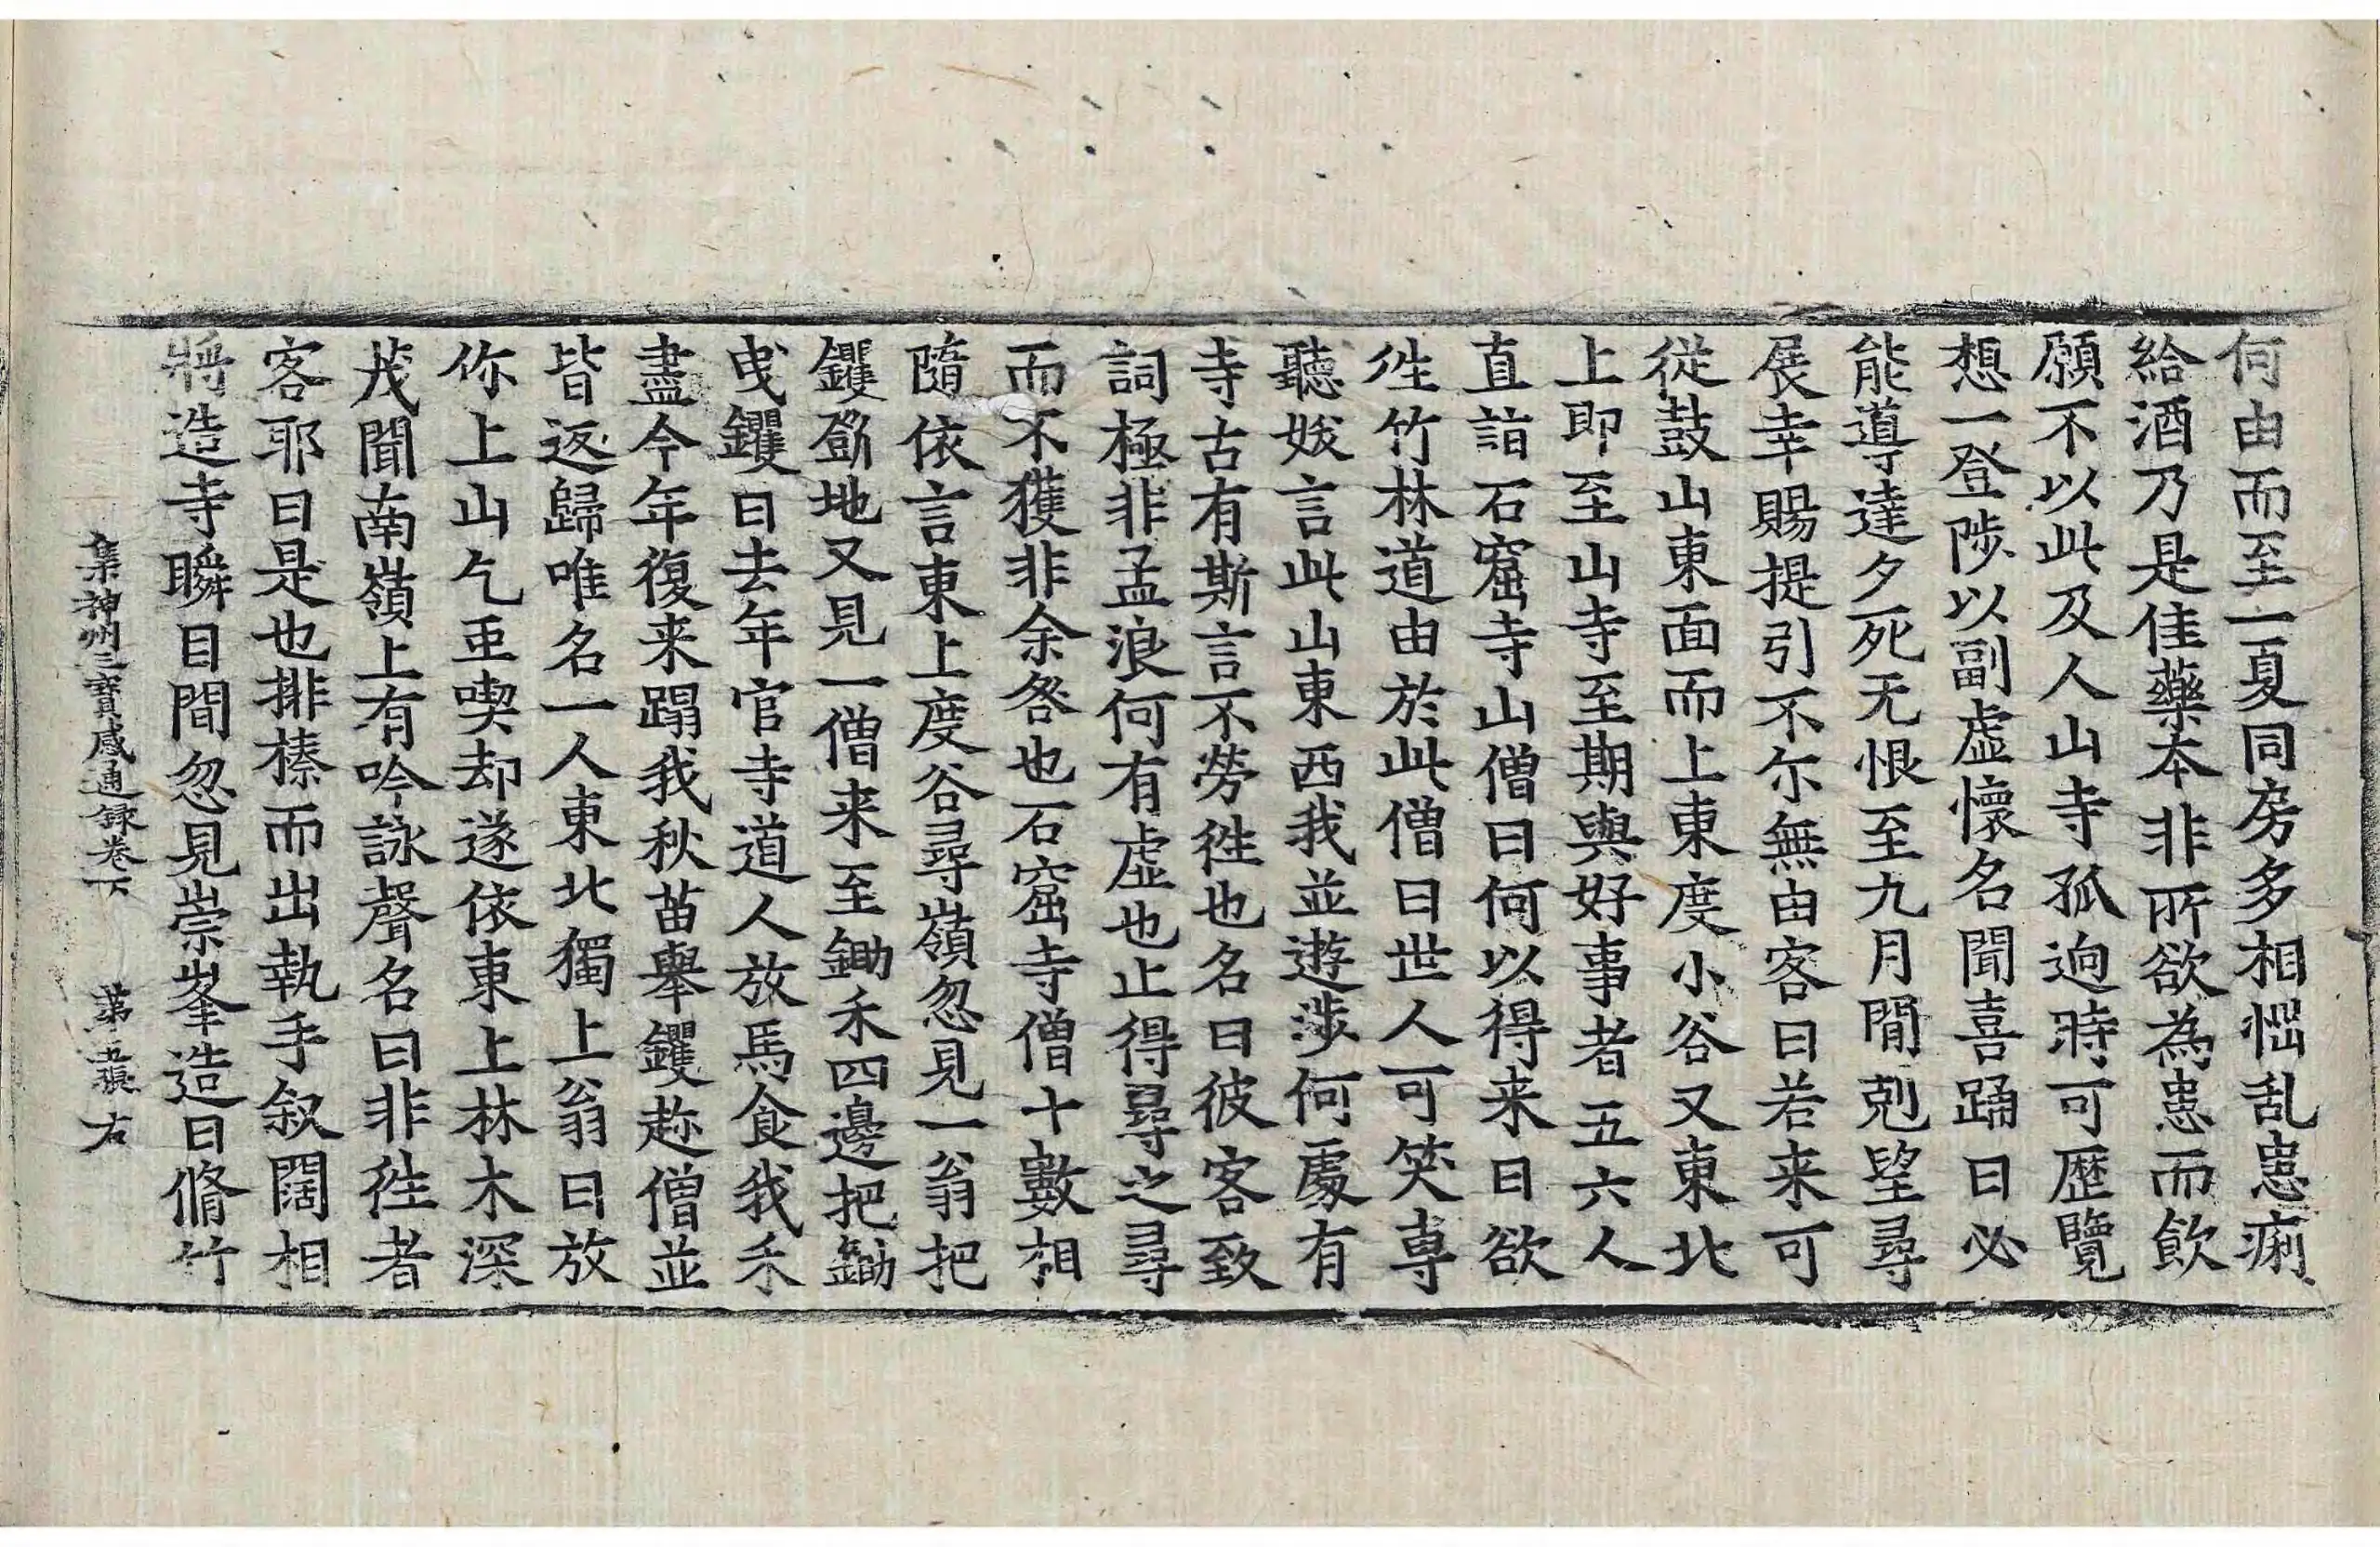 何由而至一夏同房多相惱乱患痢
給酒乃是佳藥本非所欲為患而飲
願不以此及人山寺孤逈時可歷覽
想一登陟以副虛懷名聞喜踊曰必
能導達夕死无恨至九月間剋望尋
展幸賜提引不尓無由客曰若来可
從鼓山東面而上東度小谷又東北
上即至山寺至期與好事者五六人
直詣石窟寺山僧曰何以得来曰欲
徃竹林道由於此僧曰世人可笑專
聽妭言此山東西我並遊涉何處有
寺古有斯言不勞徃也名曰彼客致
詞極非孟浪何有虛也止得尋之尋
而不獲非余咎也石窟寺僧十數相
隨依言東上度谷尋嶺忽見一翁把
钁斲地又見一僧来至鋤禾四邊把鋤
曳钁曰去年官寺道人放馬食我禾
盡今年復来蹋我秋苗舉钁趂僧並
皆返歸唯名一人東北獨上翁曰放
你上山乞䖝喫却遂依東上林木深
茂聞南嶺上有吟詠聲名曰非徃者
客耶曰是也排榛而出執手叙闊相
將造寺瞬目間忽見崇峯造日脩竹
集神州三寶感通録卷下 第五張 右